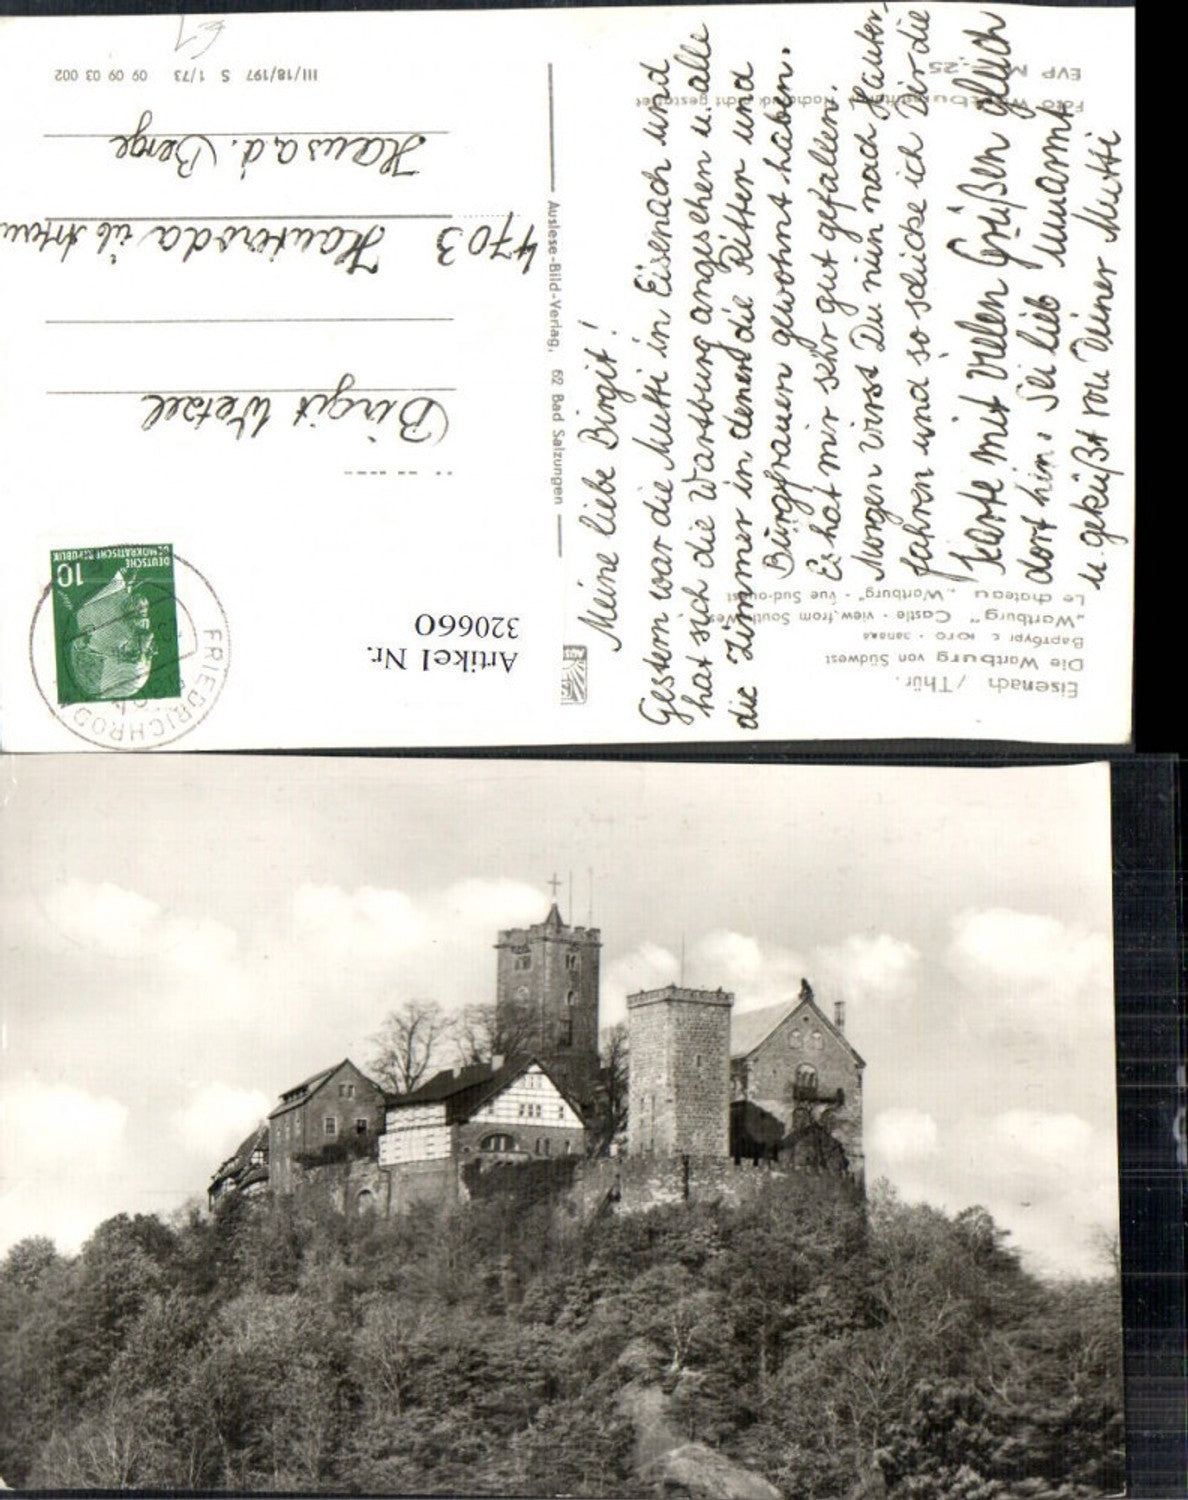 Meine liebe Birgit!
Gestern war die Mutti in Eisenach und
hat sich die Wartburg angesehen u. alle
die Zimmer in denen die Ritter und
Burgfrauen gewohnt haben.
Es hat mir sehr gut gefallen.
Morgen wirst Du nun nach Hauter-
fahren und so schicke ich Dir die
Karte mit vielen Grüßen gleich
dort hin. Sei lieb umarmt
u. geküßt von Deiner Mutti
Eisenach /Thür.
Die Wartburg von Südwest
Вартбург с юго - запада
„Wartburg" Castle - view from South West
Le chateau „Wartburg" - vue Sud-ouest
Foto Wartburgstiftung Nachdruck nicht gestattet
EVP M -,25
Auslese-Bild-Verlag, 62 Bad Salzungen
Artikel Nr.
320660
DEUTSCHE
DEMOKRATISCHE REPUBLIK
10
FRIEDRICHROD
Birgit Wetzel
4703 Hauteroda üb Artern
Haus a. d. Berge
III/18/197 S 1/73 09 09 03 002